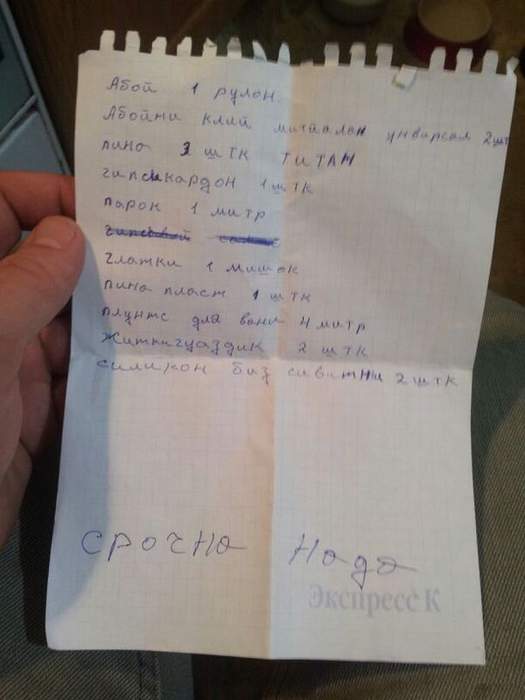 Абой 1 рулон.
Абойни клий митаалан унварсал 2шт
пина 3 штк титан
гипсикардон 1 штк
парок 1 митр
гипсовый
глатки 1 мишок
пина пласт 1 штк
плунтс для вани 4 митр
Житкигуаздик 2 штк
силикон биз сиветни 2 штк
срочно надо
Экспресс К